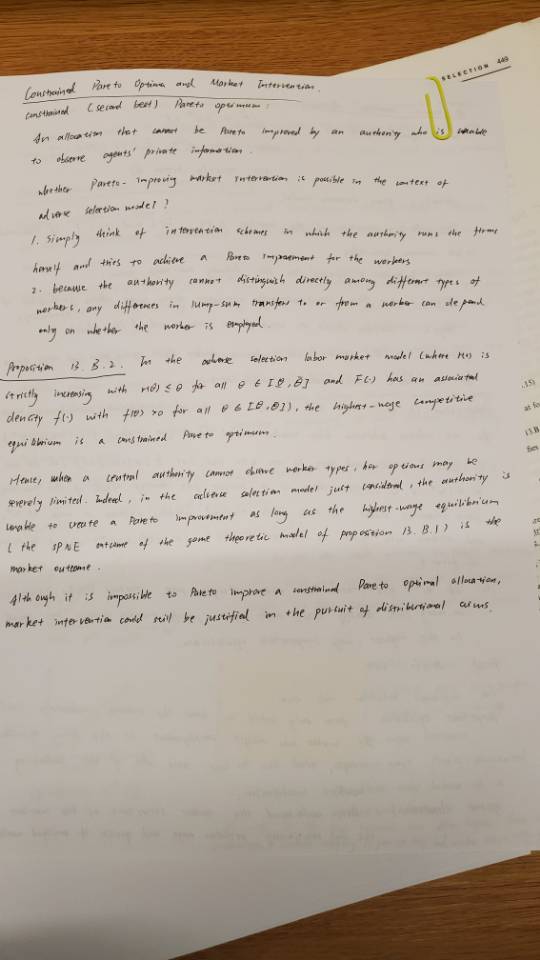 SELECTION 449
Constrained Pareto Optima and Market Intervention.
constrained (second best) Pareto optimum:
An allocation that cannot be Pareto improved by an authority who is unable
to observe agents' private information.
whether Pareto-improving market intervention is possible in the context of
adverse selection model?
1. Simply think of intervention schemes in which the authority runs the firms
herself and tries to achieve a Pareto improvement for the workers
2. because the authority cannot distinguish directly among different types of
workers, any differences in lump-sum transfers to or from a worker can depend
only on whether the worker is employed.
Proposition 13.B.2. In the adverse selection labor market model (where r(·) is
strictly increasing with r(θ) ≤ θ for all θ ∈ [θ̲, θ̄] and F(·) has an associated
density f(·) with f(θ) > 0 for all θ ∈ [θ̲, θ̄]), the highest-wage competitive
equilibrium is a constrained Pareto optimum.
Hence, when a central authority cannot observe worker types, her options may be
severely limited. Indeed, in the adverse selection model just considered, the authority is
unable to create a Pareto improvement as long as the highest-wage equilibrium
(the SPNE outcome of the game theoretic model of proposition 13.B.1) is the
market outcome.
Although it is impossible to Pareto improve a constrained Pareto optimal allocation,
market intervention could still be justified in the pursuit of distributional aims.